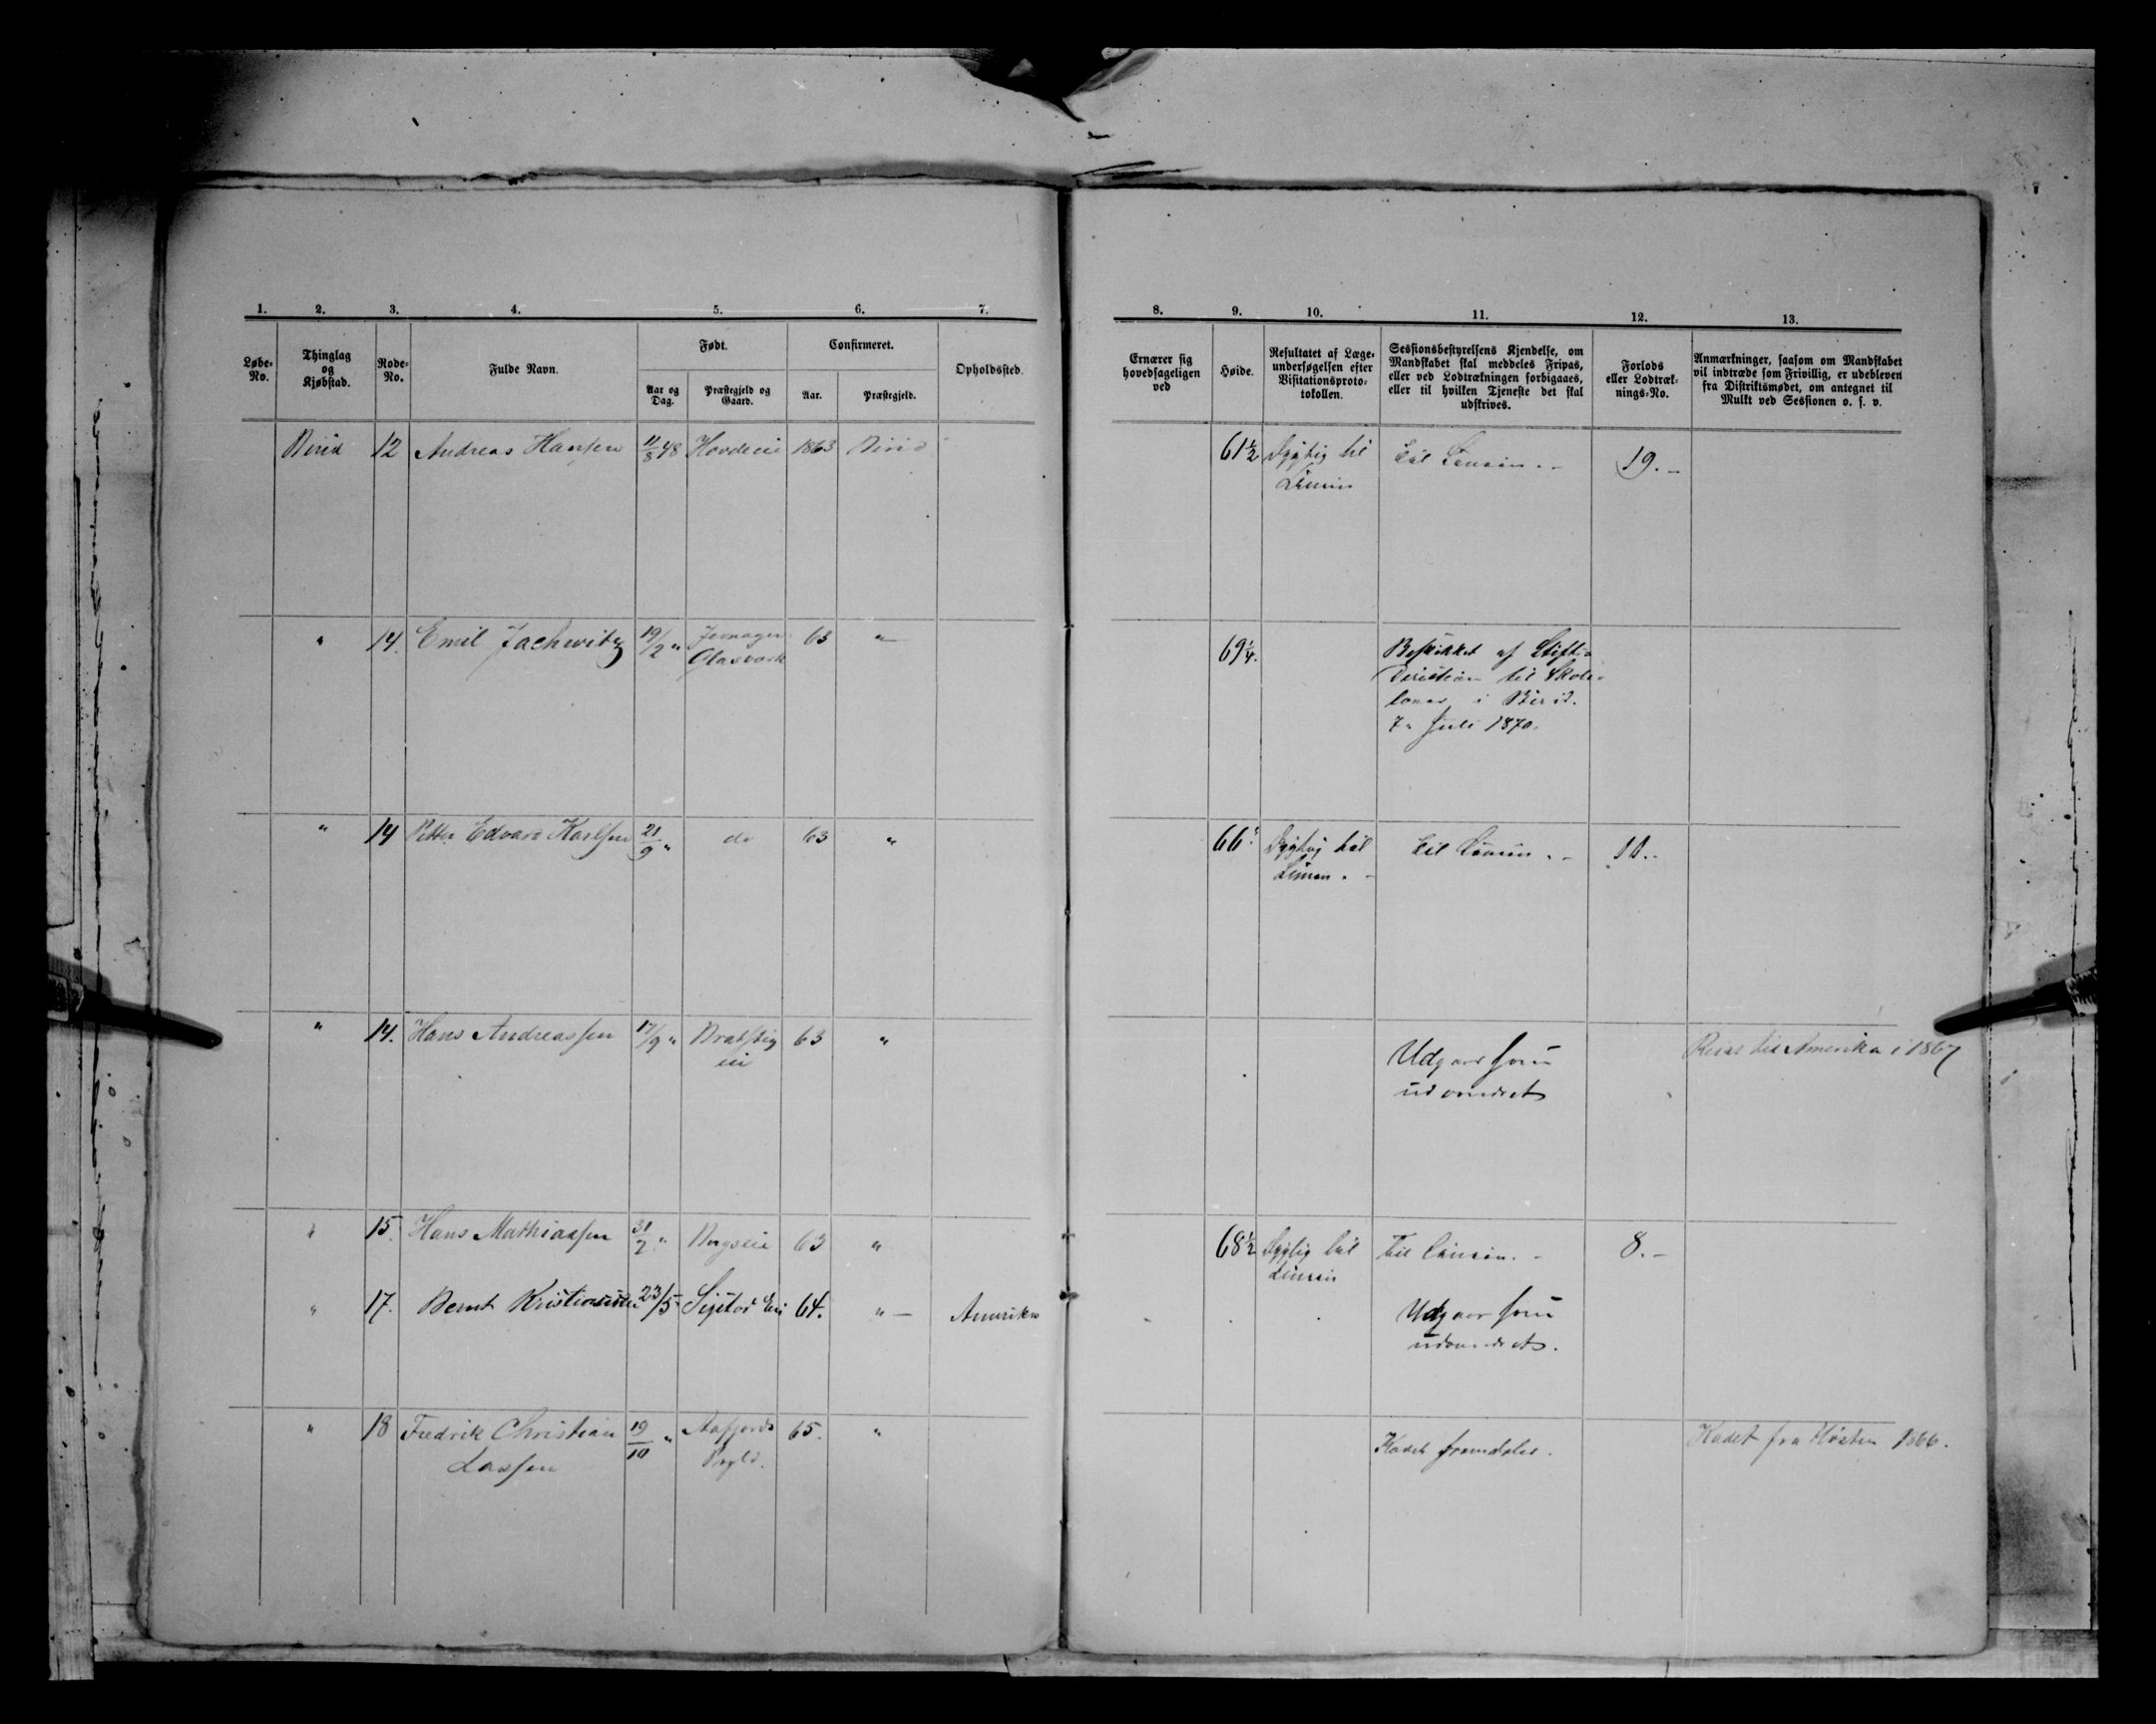 1. 2. 3. 4. 5. 6. 7.
Løbe-No. Thinglag og Kjøbstad. Rode-No. Fulde Navn. Født. Confirmeret. Opholdssted.
Aar og Dag. Præstegjeld og Gaard. Aar. Præstegjeld.
Birid 12 Andreas Hansen 11/8 48 Hovdeeie 1863 Birid
" 14. Emil Zachwitz 19/2 " 63 "
Glasværk
" 14 Petter Edvard Karlsen 21/9 " do 63 "
" 14. Hans Andreassen 17/9 " 63 "
eie
" 15. Hans Mathiassen 31/7 " 63 "
" 17. Bernt Kristiansen 23/5 Sigstad Eie 64. " Amerika
" 18 Fredrik Christian 19/10 " Aafjords 65. "
Lassen Prgld.
8. 9. 10. 11. 12. 13.
Ernærer sig hovedsageligen ved
Høide.
Resultatet af Læge-
undersøgelsen efter
Visitationsproto-
tokollen.
Sessionsbestyrelsens Kjendelse, om
Mandskabet skal meddeles Fripas,
eller ved Lodtrækningen forbigaaes,
eller til hvilken Tjeneste det skal
udskrives.
Forlods
eller Lodtræk-
nings-No.
Anmærkninger, saasom om Mandskabet
vil indtræde som Frivillig, er udebleven
fra Distriktsmødet, om antegnet til
Mulkt ved Sessionen o. s. v.
61 1/2 Dygtig til til Linien. 19.
Linien
69 1/4. Beskikket af Stifts-
Direktion til Skole-
lærer i Birid.
7. Juli 1870.
66. Dygtig til til Linien. 11.
Linien.
Udgaar som Reist til Amerika i 1867
udvandret
68 1/2 Dygtig til Til Linien. 8.
Linien
Udgaar som
udvandret.
Kadet fremdeles. Kadet fra Høsten 1866.